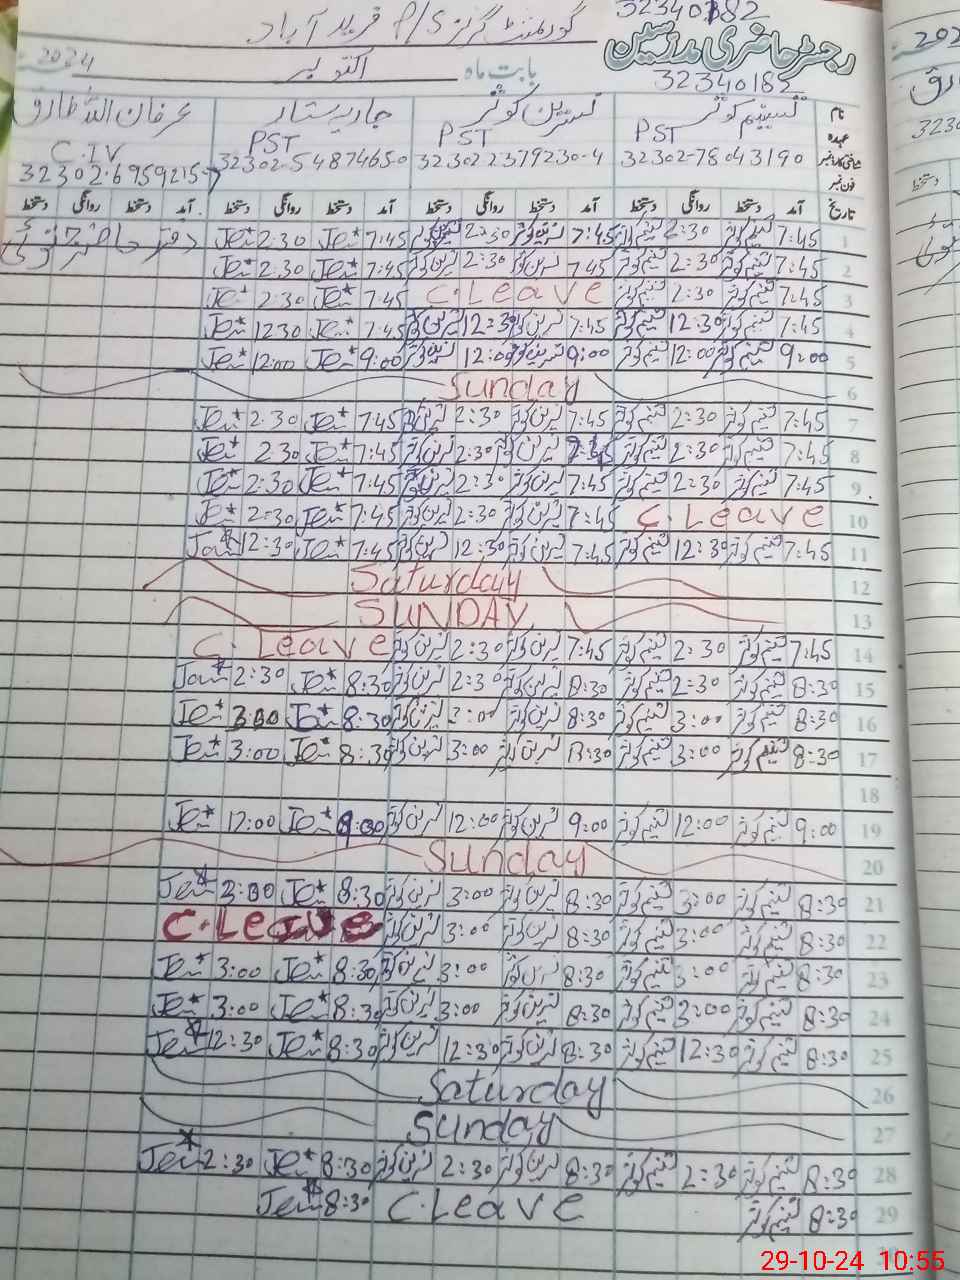 32340182
گورنمنٹ گرلز P/S فرید آباد
رجسٹر حاضری مدرسین
32340182
بابت ماہ اکتوبر 2024
نام تسنیم کوثر نسرین کوثر جاریستار عرفان اللہ طارق
عہدہ PST PST PST C.IV
32302-78043190 323022379230-4 32302-54874650 32302-6959215-7
فون نمبر
تاریخ آمد دستخط روانگی دستخط آمد دستخط روانگی دستخط آمد دستخط روانگی دستخط آمد دستخط روانگی دستخط
1 7:45 تسنیم کوثر 2:30 تسنیم کوثر 7:45 نسرین کوثر 2:30 نسرین کوثر 7:45 Jen 2:30 Jen
2 7:45 تسنیم کوثر 2:30 تسنیم کوثر 7:45 نسرین کوثر 2:30 نسرین کوثر 7:45 Jen 2:30 Jen
3 7:45 تسنیم کوثر 2:30 تسنیم کوثر C.Leave 7:45 Jen 2:30 Jen
4 7:45 تسنیم کوثر 12:30 تسنیم کوثر 7:45 نسرین کوثر 12:30 نسرین کوثر 7:45 Jen 12:30 Jen
5 9:00 تسنیم کوثر 12:00 تسنیم کوثر 9:00 نسرین کوثر 12:00 نسرین کوثر 9:00 Jen 12:00 Jen
6 Sunday
7 7:45 تسنیم کوثر 2:30 تسنیم کوثر 7:45 نسرین کوثر 2:30 نسرین کوثر 7:45 Jen 2:30 Jen
8 7:45 تسنیم کوثر 2:30 تسنیم کوثر 7:45 نسرین کوثر 2:30 نسرین کوثر 7:45 Jen 2:30 Jen
9 7:45 تسنیم کوثر 2:30 تسنیم کوثر 7:45 نسرین کوثر 2:30 نسرین کوثر 7:45 Jen 2:30 Jen
10 C.Leave 7:45 نسرین کوثر 2:30 نسرین کوثر 7:45 Jen 2:30 Jen
11 7:45 تسنیم کوثر 12:30 تسنیم کوثر 7:45 نسرین کوثر 12:30 نسرین کوثر 7:45 Jen 12:30 Jen
12 Saturday
13 SUNDAY
14 7:45 تسنیم کوثر 2:30 تسنیم کوثر 7:45 نسرین کوثر 2:30 نسرین کوثر C.Leave
15 8:30 تسنیم کوثر 2:30 تسنیم کوثر 8:30 نسرین کوثر 2:30 نسرین کوثر 8:30 Jen 2:30 Jen
16 8:30 تسنیم کوثر 3:00 تسنیم کوثر 8:30 نسرین کوثر 3:00 نسرین کوثر 8:30 Jen 3:00 Jen
17 8:30 تسنیم کوثر 3:00 تسنیم کوثر 8:30 نسرین کوثر 3:00 نسرین کوثر 8:30 Jen 3:00 Jen
18
19 9:00 تسنیم کوثر 12:00 تسنیم کوثر 9:00 نسرین کوثر 12:00 نسرین کوثر 9:00 Jen 12:00 Jen
20 Sunday
21 8:30 تسنیم کوثر 3:00 تسنیم کوثر 8:30 نسرین کوثر 3:00 نسرین کوثر 8:30 Jen 3:00 Jen
22 8:30 تسنیم کوثر 3:00 تسنیم کوثر 8:30 نسرین کوثر 3:00 نسرین کوثر C.Leave
23 8:30 تسنیم کوثر 3:00 تسنیم کوثر 8:30 نسرین کوثر 3:00 نسرین کوثر 8:30 Jen 3:00 Jen
24 8:30 تسنیم کوثر 3:00 تسنیم کوثر 8:30 نسرین کوثر 3:00 نسرین کوثر 8:30 Jen 3:00 Jen
25 8:30 تسنیم کوثر 12:30 تسنیم کوثر 8:30 نسرین کوثر 12:30 نسرین کوثر 8:30 Jen 12:30 Jen
26 Saturday
27 Sunday
28 8:30 تسنیم کوثر 2:30 تسنیم کوثر 8:30 نسرین کوثر 2:30 نسرین کوثر 8:30 Jen 2:30 Jen
29 8:30 تسنیم کوثر C.Leave 8:30 Jen
29-10-24 10:55